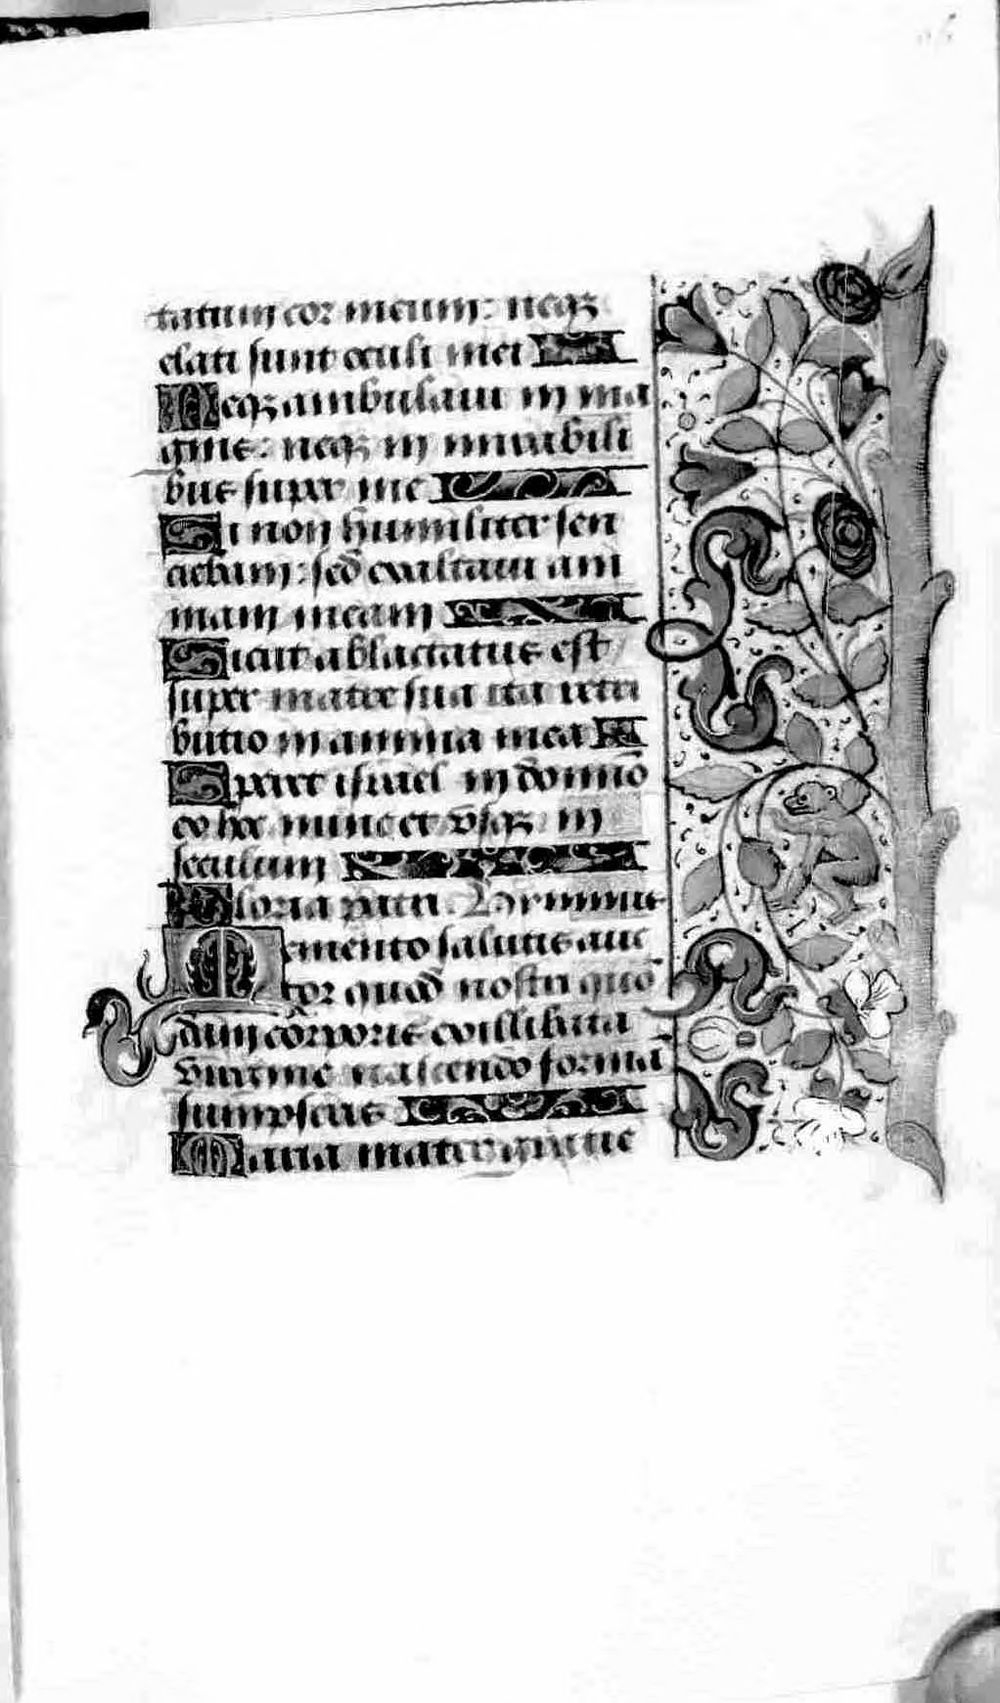 tatum cor meum: neqȝ
elati sunt oculi mei
Neqȝ ambulaui in ma
gnis: neqȝ in mirabili
bus super me
Si non humiliter sen
ciebam: sed exaltaui ani
mam meam
Sicut ablactatus est
super matre sua ita retri
butio in anima mea
Speret israel in domino
ex hoc nunc et vsqȝ in
seculum
Gloria patri. Hymnus
Memento salutis auc
tor quod nostri quō
dam corporis ex illibata
virgine nascendo formā
sumpseris
Maria mater gratie